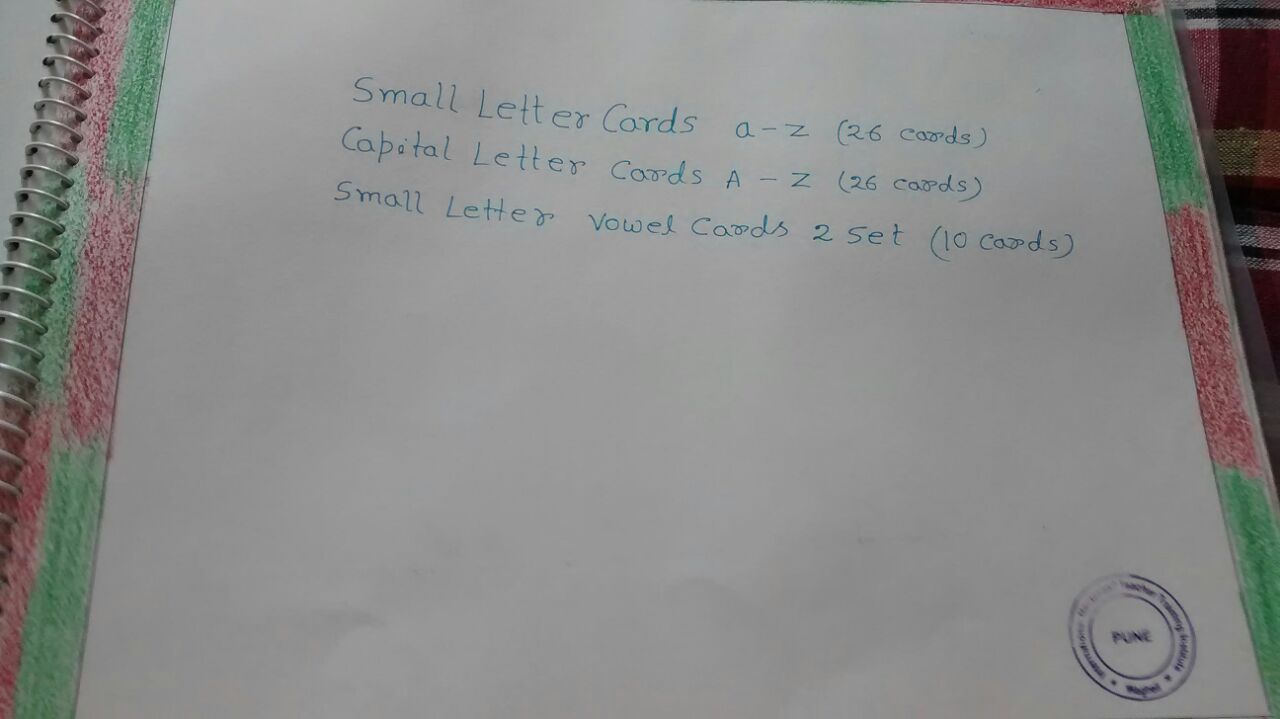 Small Letter Cards a-z (26 cards)
Capital Letter Cards A - Z (26 cards)
Small Letter Vowel Cards 2 Set (10 cards)
Teacher Training Institute
PUNE